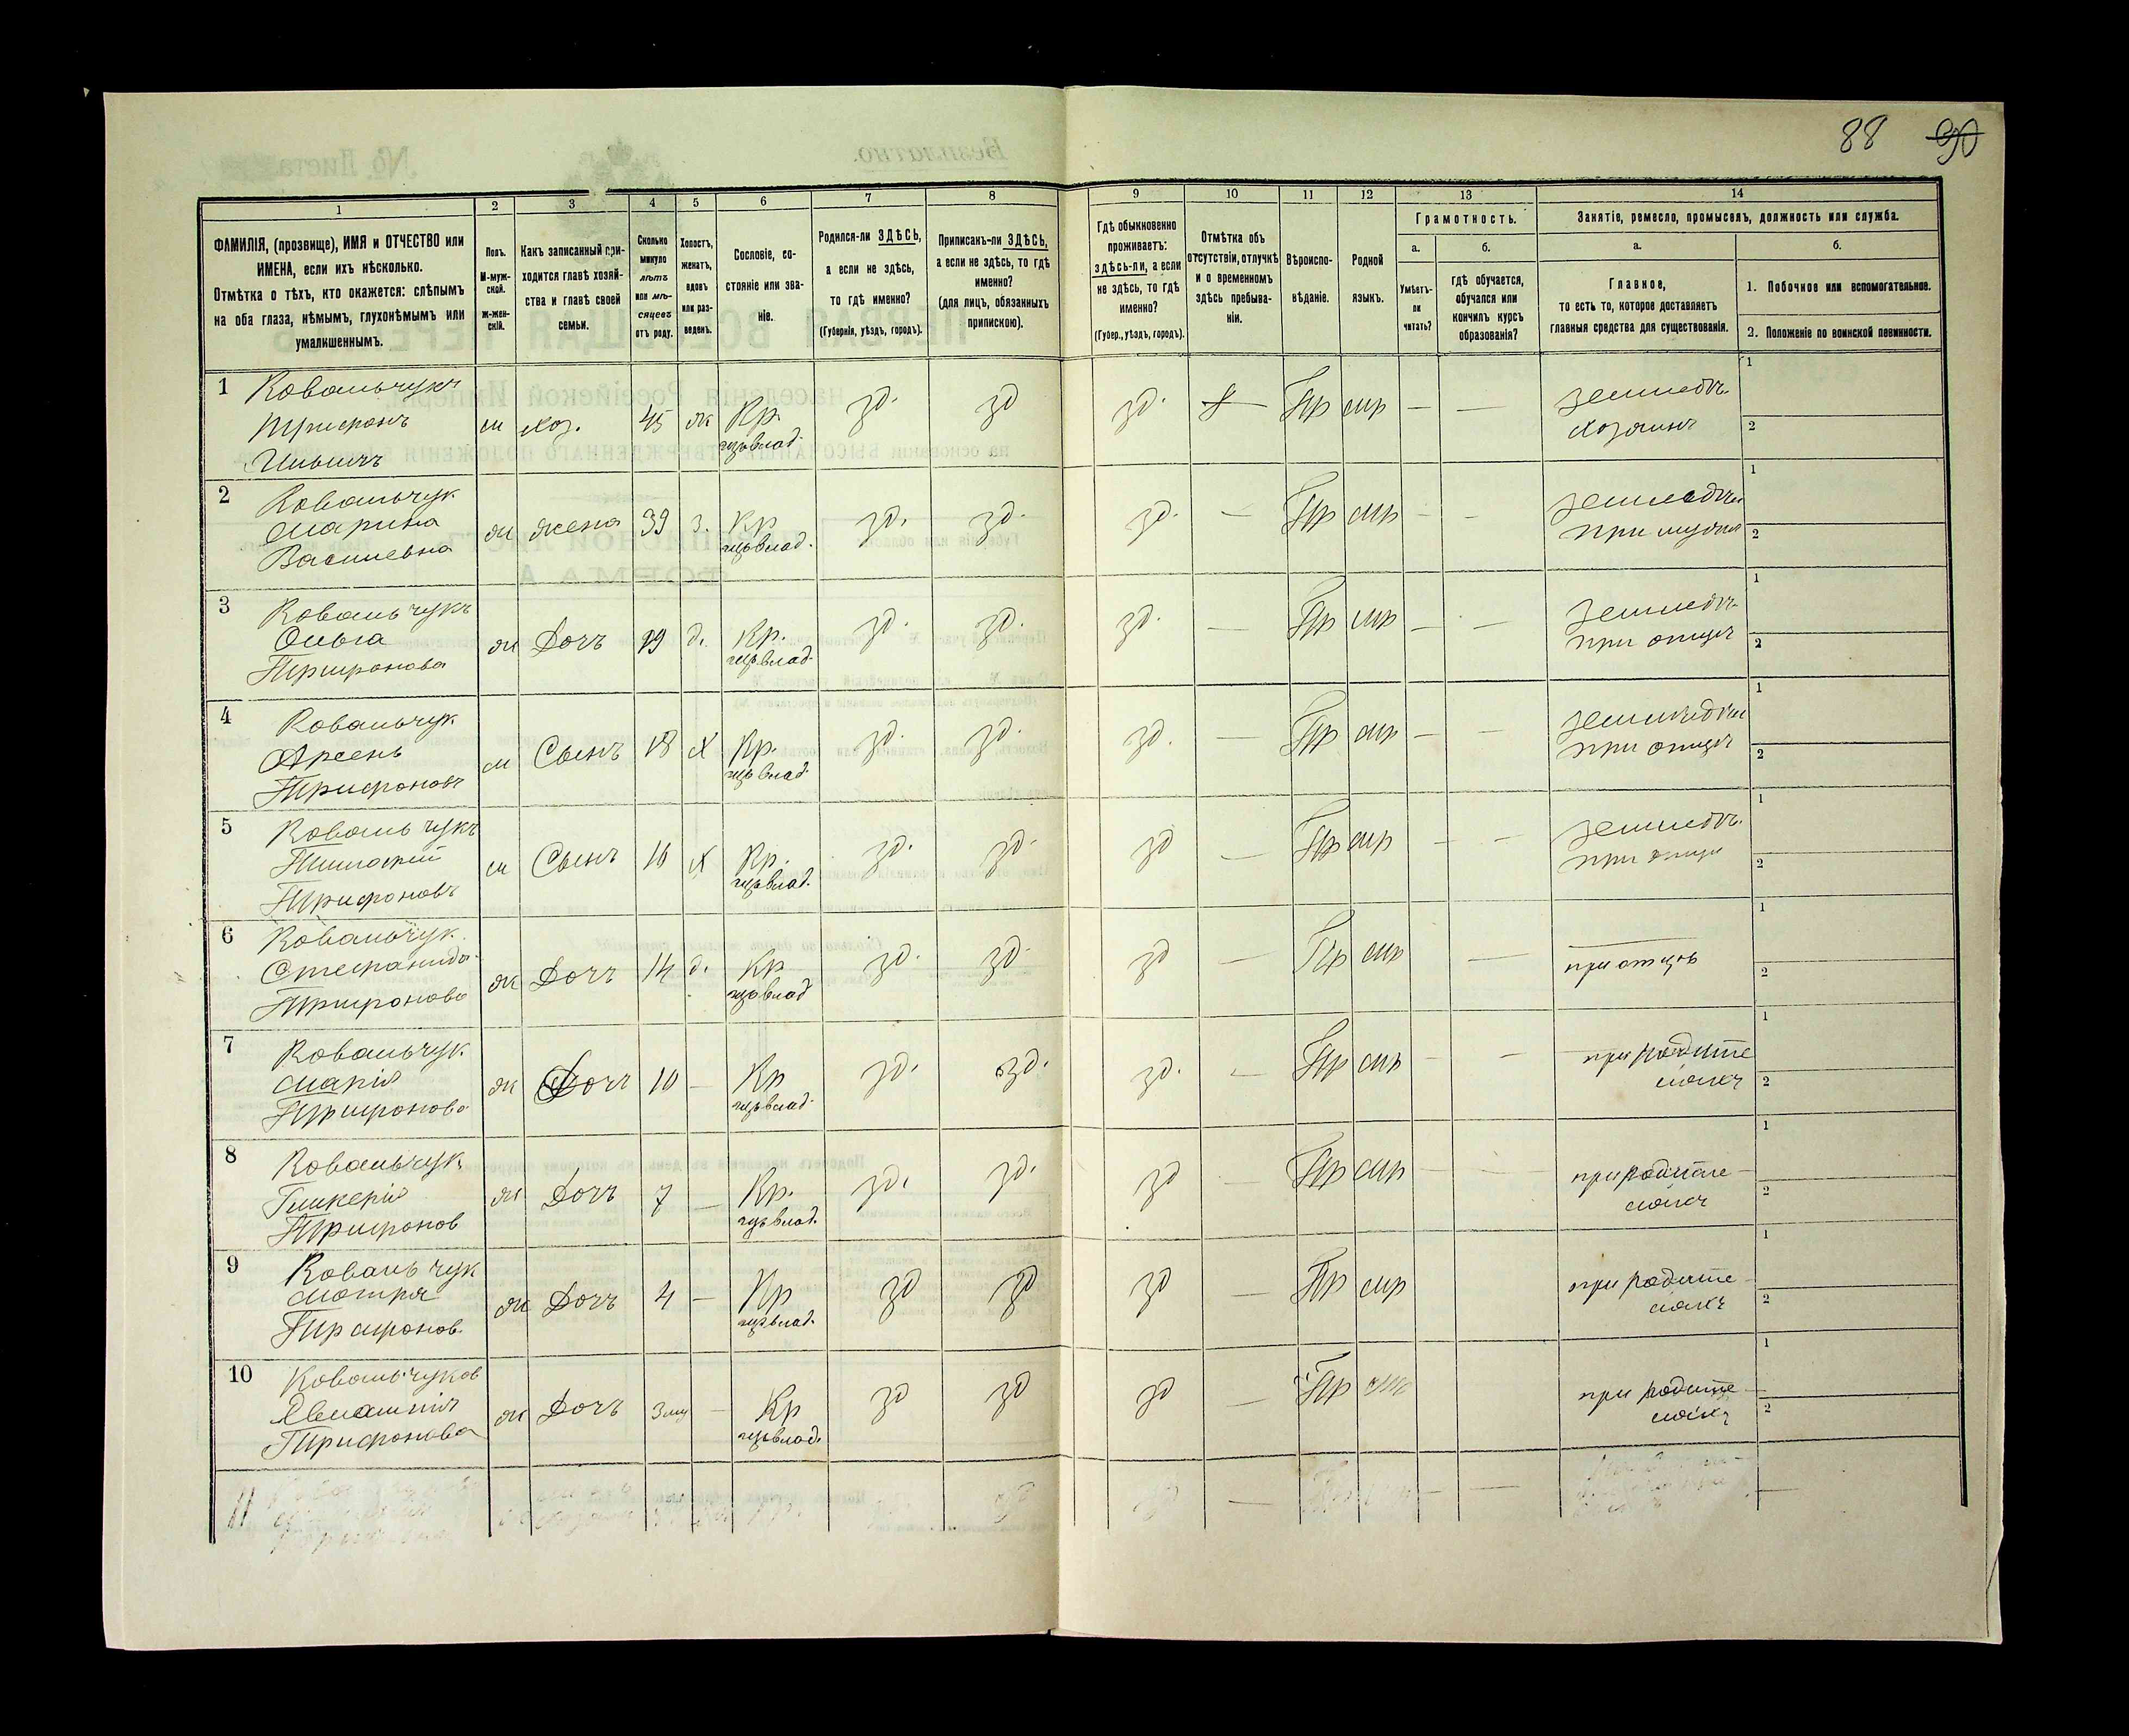 88 90
1
2
3
4
5
6
7
8
9
10
11
12
13
14
ФАМИЛІЯ, (прозвище), ИМЯ и ОТЧЕСТВО или
ИМЕНА, если ихъ нѣсколько.
Отмѣтка о тѣхъ, кто окажется: слѣпымъ
на оба глаза, нѣмымъ, глухонѣмымъ или
умалишеннымъ.
Полъ.
М-муж-
ской.
ж-жен-
скій.
Какъ записанный при-
ходится главѣ хозяй-
ства и главѣ своей
семьи.
Сколько
минуло
лѣтъ
или мѣ-
сяцевъ
отъ роду.
Холостъ,
женатъ,
вдовъ
или раз-
веденъ.
Сословіе, со-
стояніе или зва-
ніе.
Родился-ли ЗДѢСЬ,
а если не здѣсь,
то гдѣ именно?
(Губернія, уѣздъ, городъ).
Приписанъ-ли ЗДѢСЬ,
а если не здѣсь, то гдѣ
именно?
(для лицъ, обязанныхъ
припискою).
Гдѣ обыкновенно
проживаетъ:
здѣсь-ли, а если
не здѣсь, то гдѣ
именно?
(Губер., уѣздъ, городъ).
Отмѣтка объ
отсутствіи, отлучкѣ
и о временномъ
здѣсь пребыва-
ніи.
Вѣроиспо-
вѣданіе.
Родной
языкъ.
Грамотность.
а.
Умѣетъ-
ли
читать?
б.
гдѣ обучается,
обучался или
кончилъ курсъ
образованія?
Занятіе, ремесло, промыселъ, должность или служба.
а.
Главное,
то есть то, которое доставляетъ
главныя средства для существованія.
б.
1. Побочное или вспомогательное.
2. Положеніе по воинской повинности.
1 Ковальчукъ
Трифонъ
Ильичъ
м хоз. 45 ж Кр. зд. зд зд. — Пр мр — —
земледѣ.
хозяинъ
1
2
2 Ковальчук
Марина
Василевна
ж жена 39 з. Кр зд. зд. зд. — Пр мр — —
при мужѣ
1
2
3 Ковальчукъ
Ольга
Трифонова
ж Дочъ 19 д. Кр. зд. зд. зд. — Пр мр — —
земледѣ.
при отцѣ
1
2
4 Ковальчук
Арсень
Трифоновъ
м Сынъ 18 х Кр. зд. зд. зд. — Пр мр — —
при отцѣ
1
2
5 Ковальчукъ
Тимофей
Трифоновъ
м Сынъ 16 х Кр. зд. зд. зд — Пр мр — —
земледѣ.
при отцѣ
1
2
6 Ковальчук
Стефанида
Трифонова
ж Дочъ 14 д. Кр зд. зд. зд — Пр мр —
при отцѣ
1
2
7 Ковальчук
Марія
Трифонова
ж Дочъ 10 — Кр зд. зд. зд. — Пр мр — —
при родите
ляхъ
1
2
8 Ковальчук
Гликерія
Трифонов
ж Дочъ 7 — Кр. зд. зд. зд — Пр мр — —
при родите
ляхъ
1
2
9 Ковальчук
Мотря
Трифонов
ж Дочъ 4 — Кр зд зд зд — Пр мр
при родите
ляхъ
1
2
10
Трифонова
ж Дочъ — Кр зд зд зд — Пр
при родите
ляхъ
1
2
11